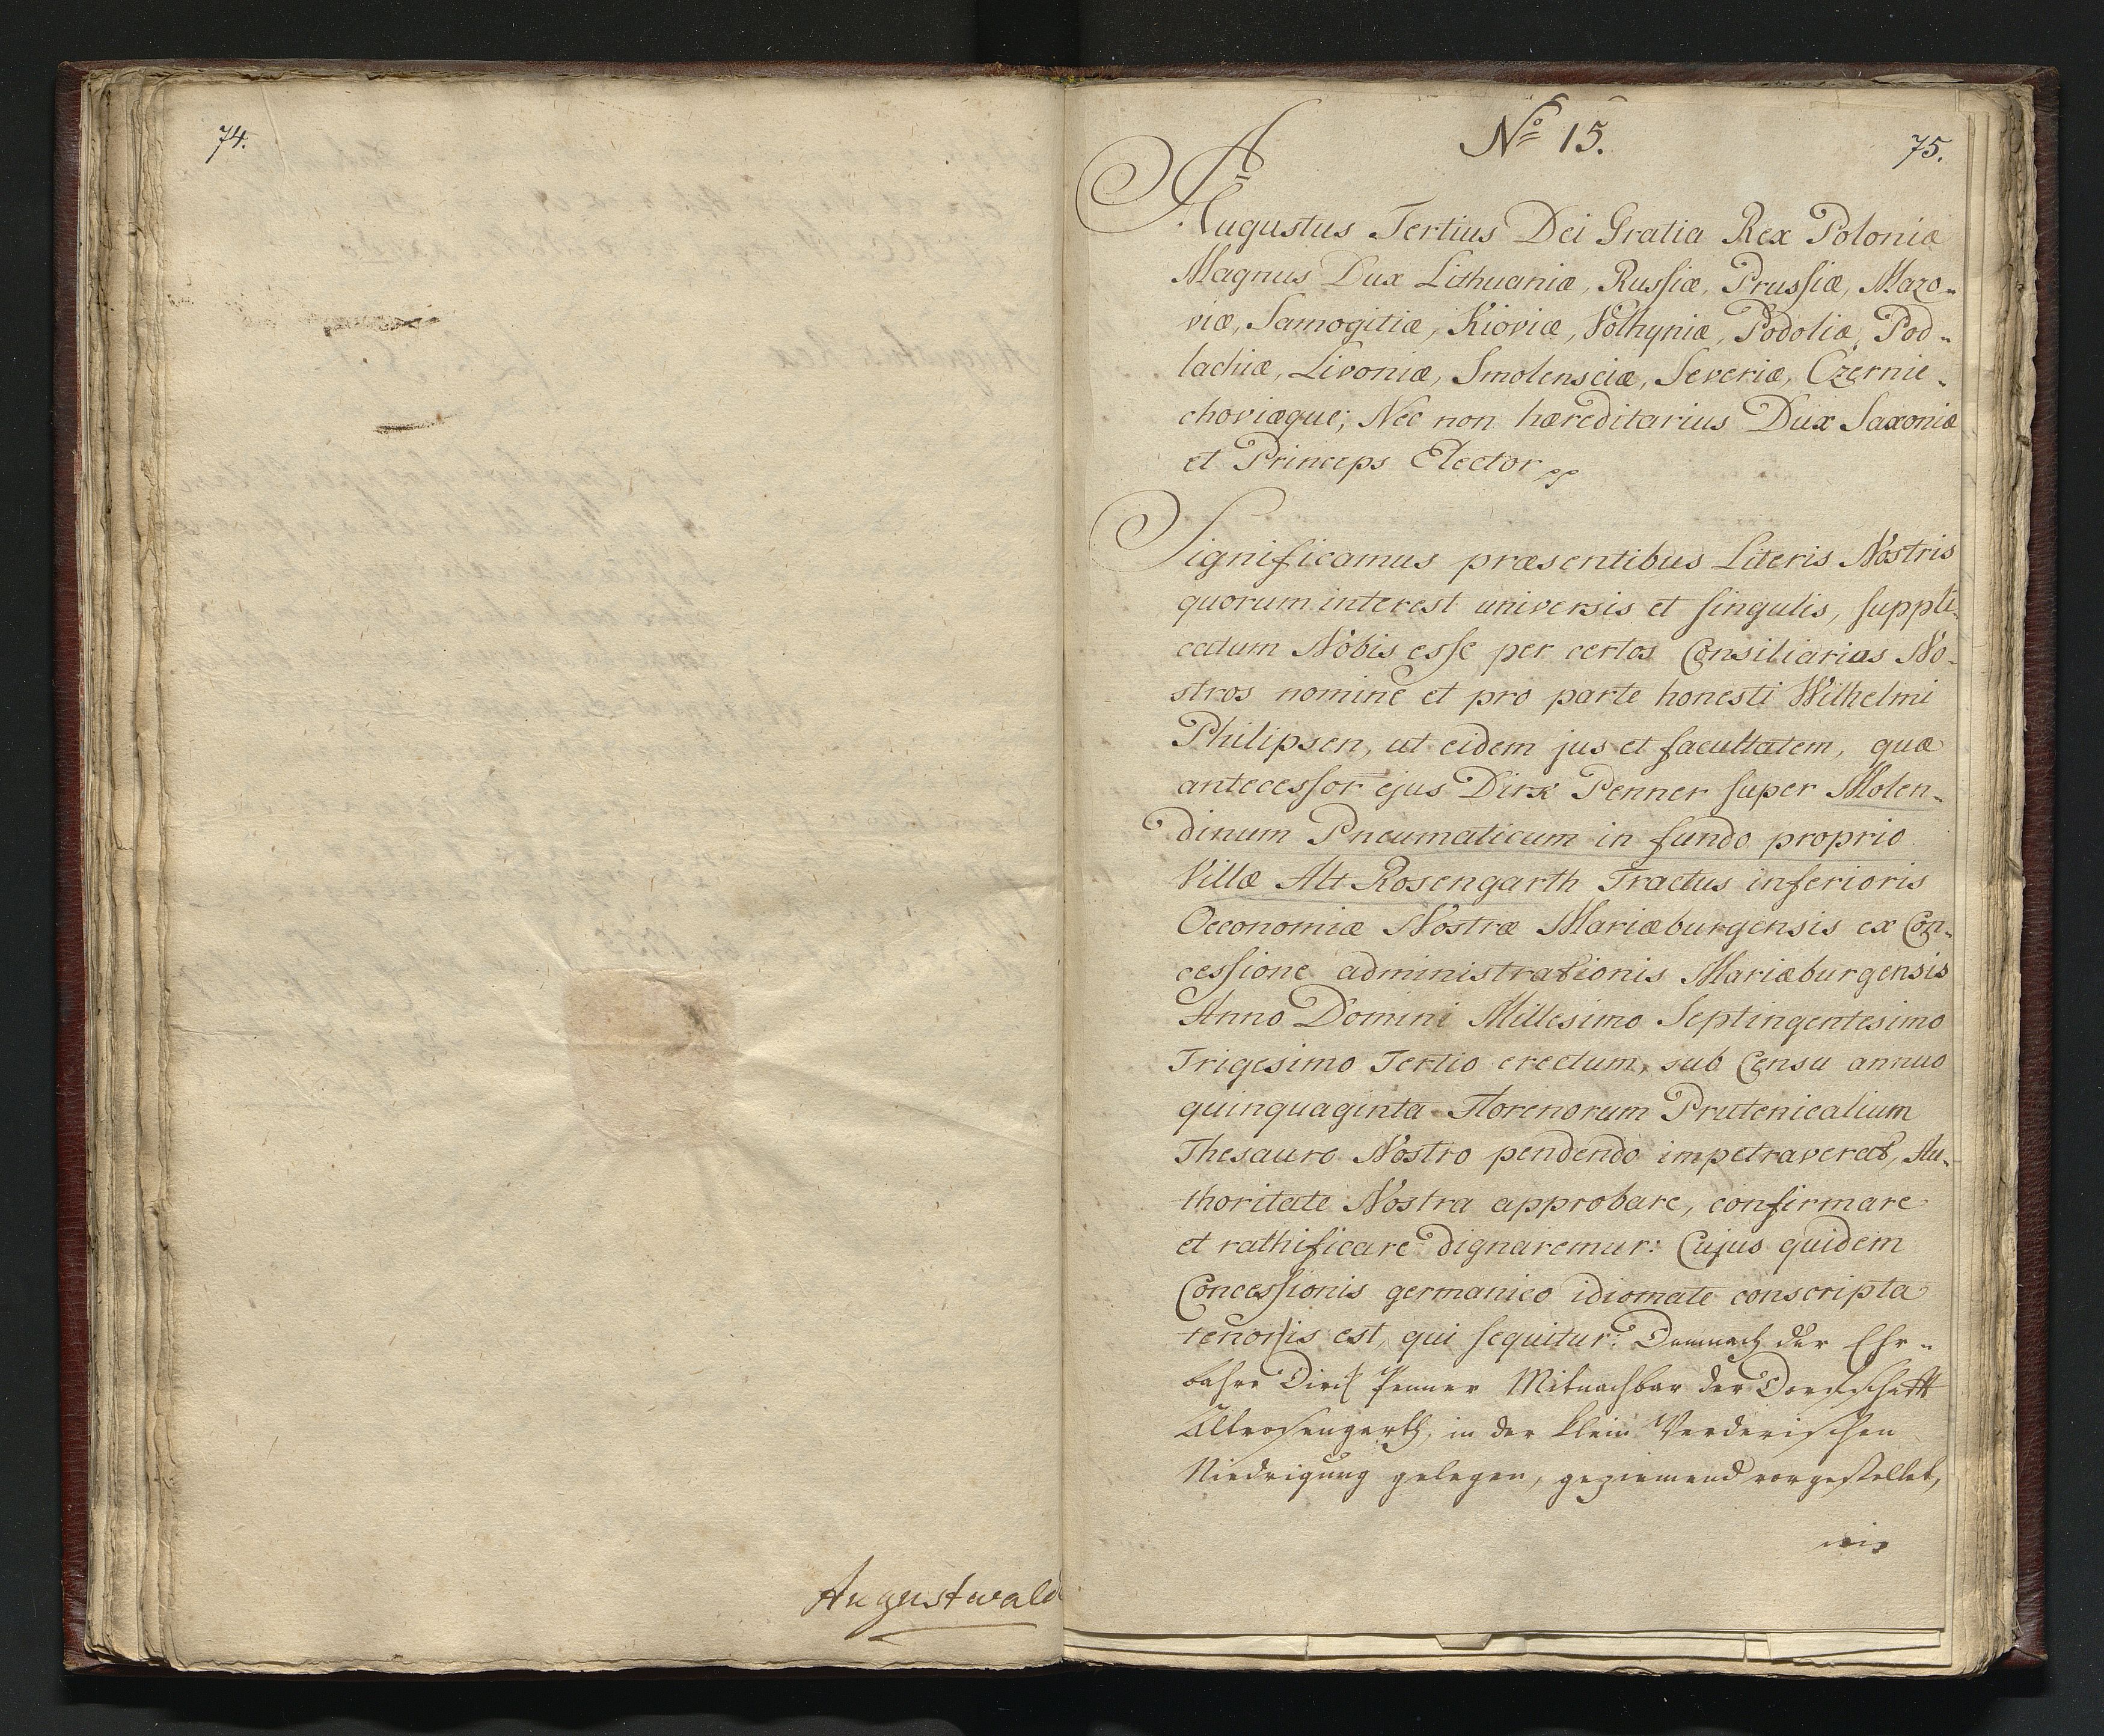 74.
Augustwald
No 15.
75.
Augustus Tertius Dei Gratia Rex Poloniæ
Magnus Dux Lithuaniæ, Russiæ, Prussiæ, Mazo-
viæ, Samogitiæ, Kioviæ, Volhyniæ, Podoliæ, Pod-
lachiæ, Livoniæ, Smolensciæ, Severiæ, Czernie-
choviæque; Nec non hæreditarius Dux Saxoniæ
et Princeps Elector pp
Significamus præsentibus Literis Nostris
quorum interest universis et singulis, suppli-
catum Nobis esse per certos Consiliarios No-
stros nomine et pro parte honesti Wilhelmi
Philipsen, ut eidem jus et facultatem, quæ
antecessor ejus Dirk Penner super Molen-
dinum Pneumaticum in fundo proprio
Villæ Alt Rosengarth Tractus inferioris
Oeconomiæ Nostræ Mariæburgensis ex Con-
cessione administrationis Mariæburgensis
Anno Domini Millesimo Septingentesimo
Trigesimo Tertio erectum, sub Censu annuo
quinquaginta Florenorum Prutenicalium
Thesauro Nostro pendendo impetraverat, Au-
thoritate Nostra approbare, confirmare
et rathificare dignaremur: Cujus quidem
Concessionis germanico idiomate conscripta
tenor is est, qui sequitur: Demnach der Ehr-
bahre Dirck Penner Mitnachbar der Dorfschafft
Altrosengarth, in der klein Werderischen
Niedrigung gelegen, geziemend vorgestellet,
wie